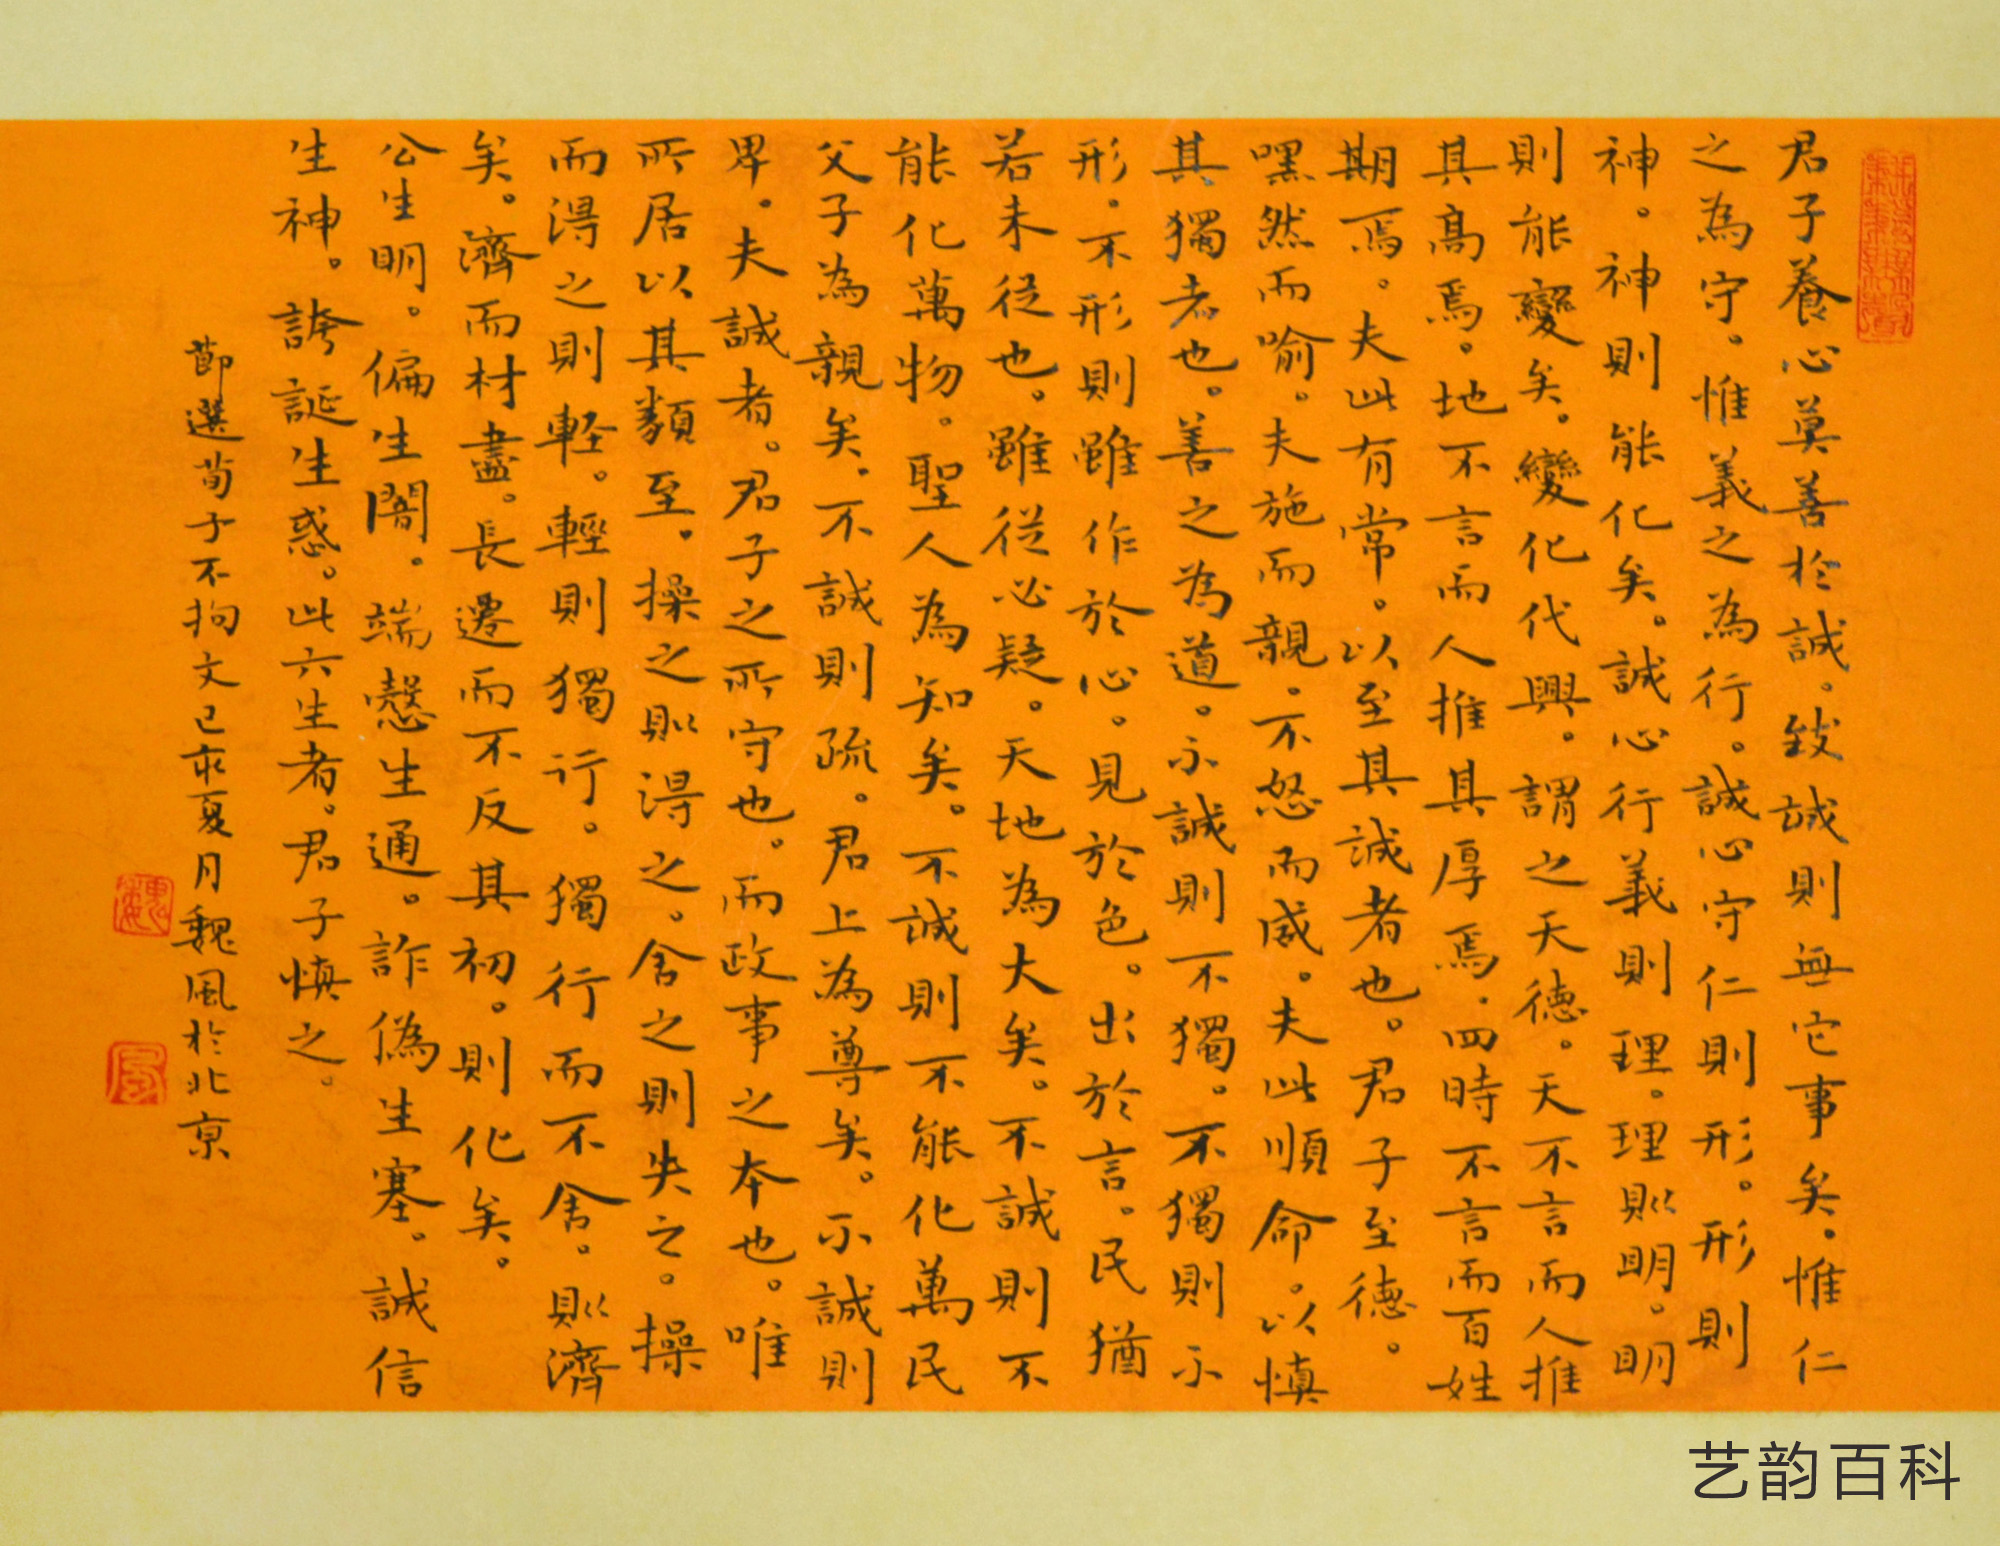 君子養心莫善於誠。致誠則無它事矣。惟仁
之為守。惟義之為行。誠心守仁則形。形則
神。神則能化矣。誠心行義則理。理則明。明
則能變矣。變化代興。謂之天德。天不言而人推
其高焉。地不言而人推其厚焉。四時不言而百姓
期焉。夫此有常。以至其誠者也。君子至德。
嘿然而喻。夫施而親。不怒而威。夫此順命。以慎
其獨者也。善之為道。不誠則不獨。不獨則不
形。不形則雖作於心。見於色。出於言。民猶
若未從也。雖從必疑。天地為大矣。不誠則不
能化萬物。聖人為知矣。不誠則不能化萬民
父子為親矣。不誠則疏。君上為尊矣。不誠則
卑。夫誠者。君子之所守也。而政事之本也。唯
所居以其類至。操之則得之。舍之則失之。操
而得之則軽。輕則獨行。獨行而不舍。則濟
矣。濟而材盡。長遷而不反其初。則化矣。
公生明。偏生闇。端愨生通。詐偽生塞。誠信
生神。誇誕生惑。此六生者。君子慎之。
節選荀子不拘文己亥夏月魏風於北京
魏
風
艺韵百科